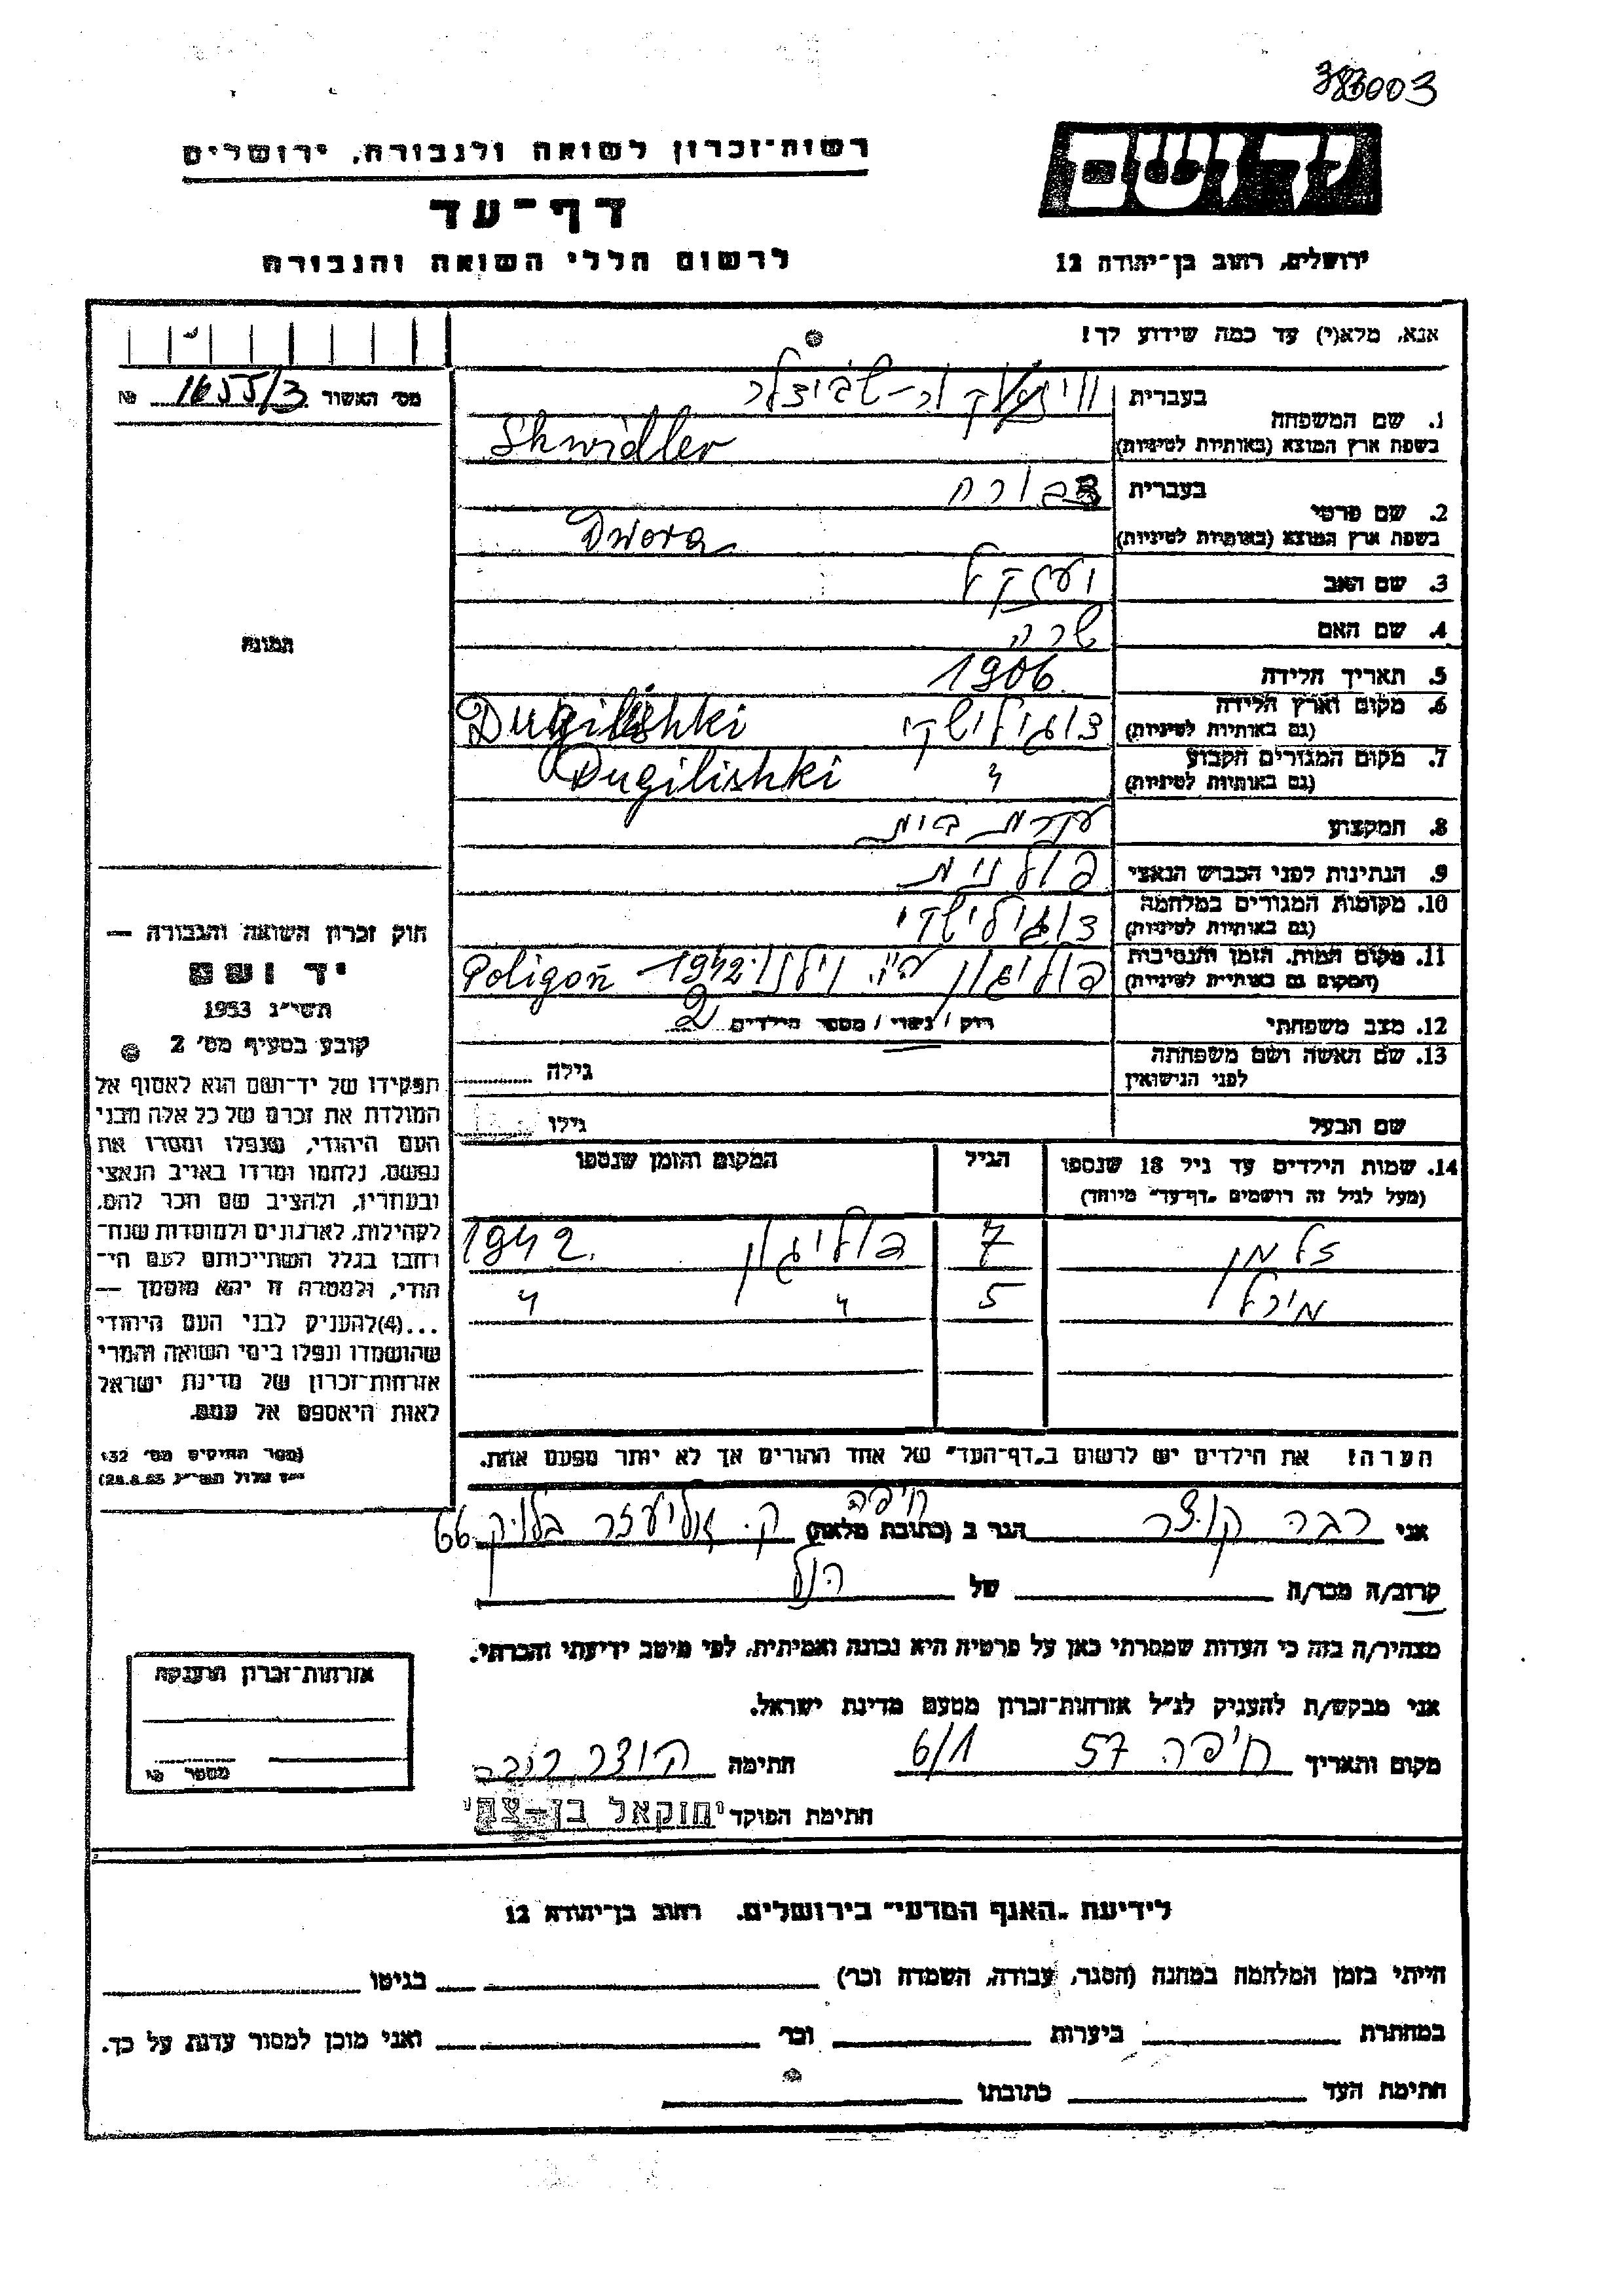 383003
יד ושם
רשות־זכרון לשואה ולגבורה, ירושלים
דף־עד
לרשום חללי השואה והגבורה
ירושלים, רחוב בן־יהודה 12
אנא, מלא(י) עד כמה שידוע לך!
מס' האשור 1655/3 №
1. שם המשפחה
בעברית שבידלר
בשפת ארץ המוצא (באותיות לטיניות) Shwidler
2. שם פרטי
בעברית דבורה
בשפת ארץ המוצא (באותיות לטיניות) Dwora
3. שם האב
4. שם האם שרה
5. תאריך הלידה 1906
6. מקום וארץ הלידה
(גם באותיות לטיניות) דוגילישקי Dugilishki
7. מקום המגורים הקבוע
(גם באותיות לטיניות) " Dugilishki
8. המקצוע עקרת בית
9. הנתינות לפני הכבוש הנאצי פולנית
10. מקומות המגורים במלחמה
(גם באותיות לטיניות) דוגילישקי
11. מקום המות, הזמן והנסיבות
(המקום גם באותיות לטיניות) פוליגון ע"י וילנו 1942 Poligon
12. מצב משפחתי רוק / נשוי / מספר הילדים 2
13. שם האשה ושם משפחתה
לפני הנישואין
גילה
שם הבעל
גילו
14. שמות הילדים עד גיל 18 שנספו
(מעל לגיל זה רושמים "דף־עד" מיוחד)
הגיל
המקום והזמן שנספו
זלמן 7 פוליגון 1942.
מיכל 5 " "
הערה! את הילדים יש לרשום ב"דף־העד" של אחד ההורים אך לא יותר מפעם אחת.
התמונה
חוק זכרון השואה והגבורה —
יד ושם
תשי"ג 1953
קובע בסעיף מס' 2
תפקידו של יד־ושם הוא לאסוף אל
המולדת את זכרם של כל אלה מבני
העם היהודי, שנפלו ומסרו את
נפשם, נלחמו ומרדו באויב הנאצי
ובעוזריו, ולהציב שם וזכר להם,
לקהילות, לארגונים ולמוסדות שנח־
רבו בגלל השתייכותם לעם הי־
הודי, ולמטרה זו יהא מוסמך —
...(4) להעניק לבני העם היהודי
שהושמדו ונפלו בימי השואה והמרי
אזרחות־זכרון של מדינת ישראל
לאות היאספם אל עמם.
(ספר החוקים מס' 132
י"ז אלול תשי"ג 28.8.53)
אני רבה קוצר הגר ב (כתובת מלאה) חיפה ק. אליעזר בלוק 66
קרוב/ה מכר/ה של הנ"ל
מצהיר/ה בזה כי העדות שמסרתי כאן על פרטיה היא נכונה ואמיתית, לפי מיטב ידיעתי והכרתי.
אני מבקש/ת להעניק לנ"ל אזרחות־זכרון מטעם מדינת ישראל.
מקום ותאריך חיפה 57 6/1 חתימה קוצר רבה
חתימת הפוקד יחזקאל בן-צבי
אזרחות־זכרון הוענקה
מספר
לידיעת "האגף המדעי" בירושלים. רחוב בן־יהודה 12
הייתי בזמן המלחמה במחנה (הסגר, עבודה, השמדה וכר') בגיטו
במחתרת ביערות וכר' ואני מוכן למסור עדות על כך.
חתימת העד כתובתו